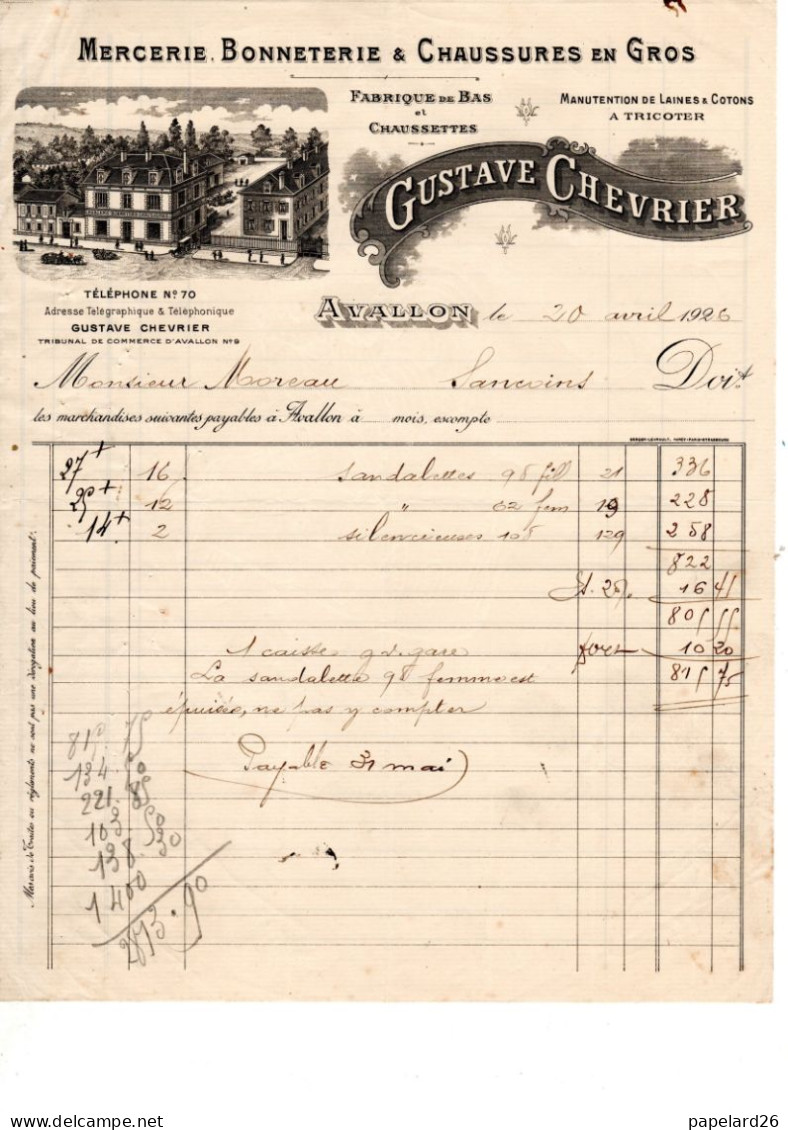 MERCERIE, BONNETERIE & CHAUSSURES EN GROS
FABRIQUE DE BAS
et
CHAUSSETTES
MANUTENTION DE LAINES & COTONS
A TRICOTER
GUSTAVE CHEVRIER
TÉLÉPHONE Nº 70
Adresse Télégraphique & Téléphonique
GUSTAVE CHEVRIER
TRIBUNAL DE COMMERCE D'AVALLON Nº 9
AVALLON le 20 avril 1926
Monsieur Moreau Sancoins Doit
les marchandises suivantes payables à Avallon à mois, escompte
27+ 16 sandalettes 98 fill 21 336
12 " 62 fem 19 228
14+ 2 silencieuses 108 129 258
822
16 45
805 55
1 caisse g.v. gare 10 20
La sandalette 98 femme est 815 75
épuisée, ne pas y compter
Payable 31 mai
Mes avis de Traites ou règlements ne sont pas une dérogation au lieu de paiement.
815 75
134. 50
221. 85
103 50
138. 30
1 400
2813.90
papelard26